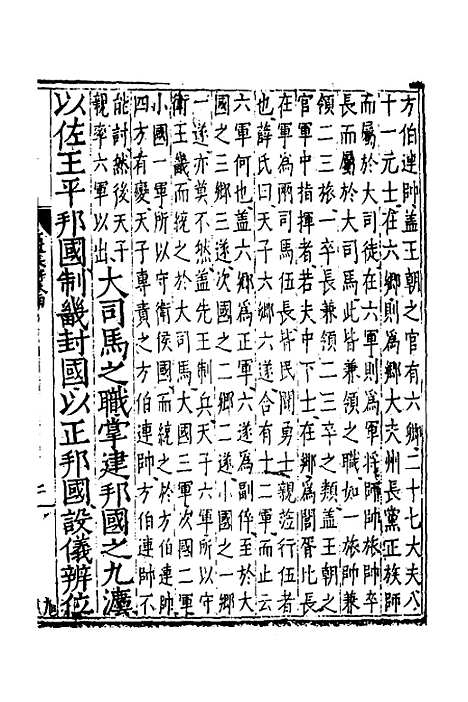 方伯連帥蓋王朝之官有六鄉二十七大夫八
十一元士在六鄉則爲鄉大夫州長黨正族師
而屬於大司徒在六軍則爲軍將師帥旅帥卒
長而屬於大司馬此皆兼領之職如一旅帥兼
領二三旅一卒長兼領二三卒之類蓋王朝之
官軍中指揮者若夫中下士在鄉爲閭胥比長
在軍爲兩司馬伍長皆民間勇士親蒞行伍者
也薛氏曰天子六鄉六遂合有十二軍而止云
六軍何也蓋六鄉爲正軍六遂爲副倅至於大
國之三鄉三遂次國之二鄉二遂小國之一鄉
一遂亦莫不然蓋先王制兵天子六軍所以守
衛王畿而統之於大司馬大國三軍次國二軍
小國一軍所以守衛侯國而統之於方伯連帥
四方有變天子專責之方伯連帥方伯連帥不
能討然後天子
親率六軍以出
大司馬之職掌建邦國之九灋
以佐王平邦國制畿封國以正邦國設儀辨位